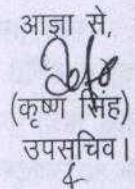 आज्ञा से,
(कृष्ण सिंह)
उपसचिव।